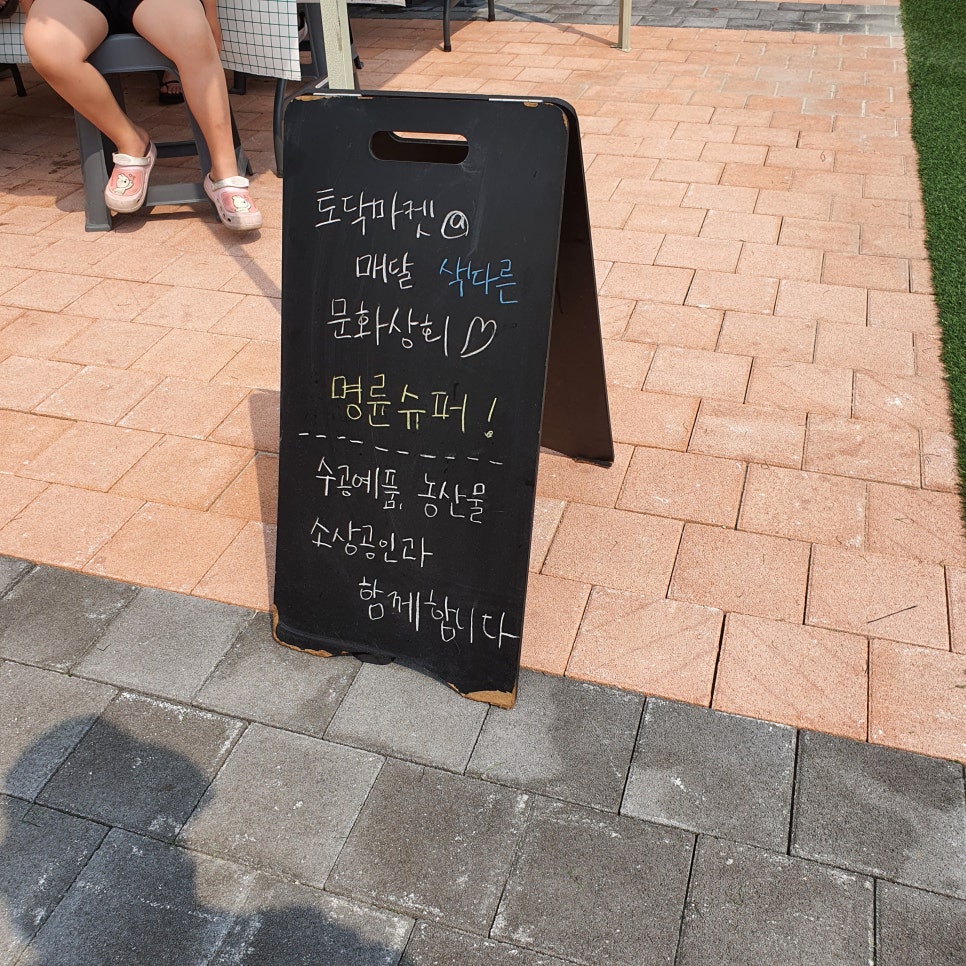 토닥마켓@
매달 색다른
문화상회♡
명륜슈퍼!
수공예품, 농산물
소상공인과
함께합니다